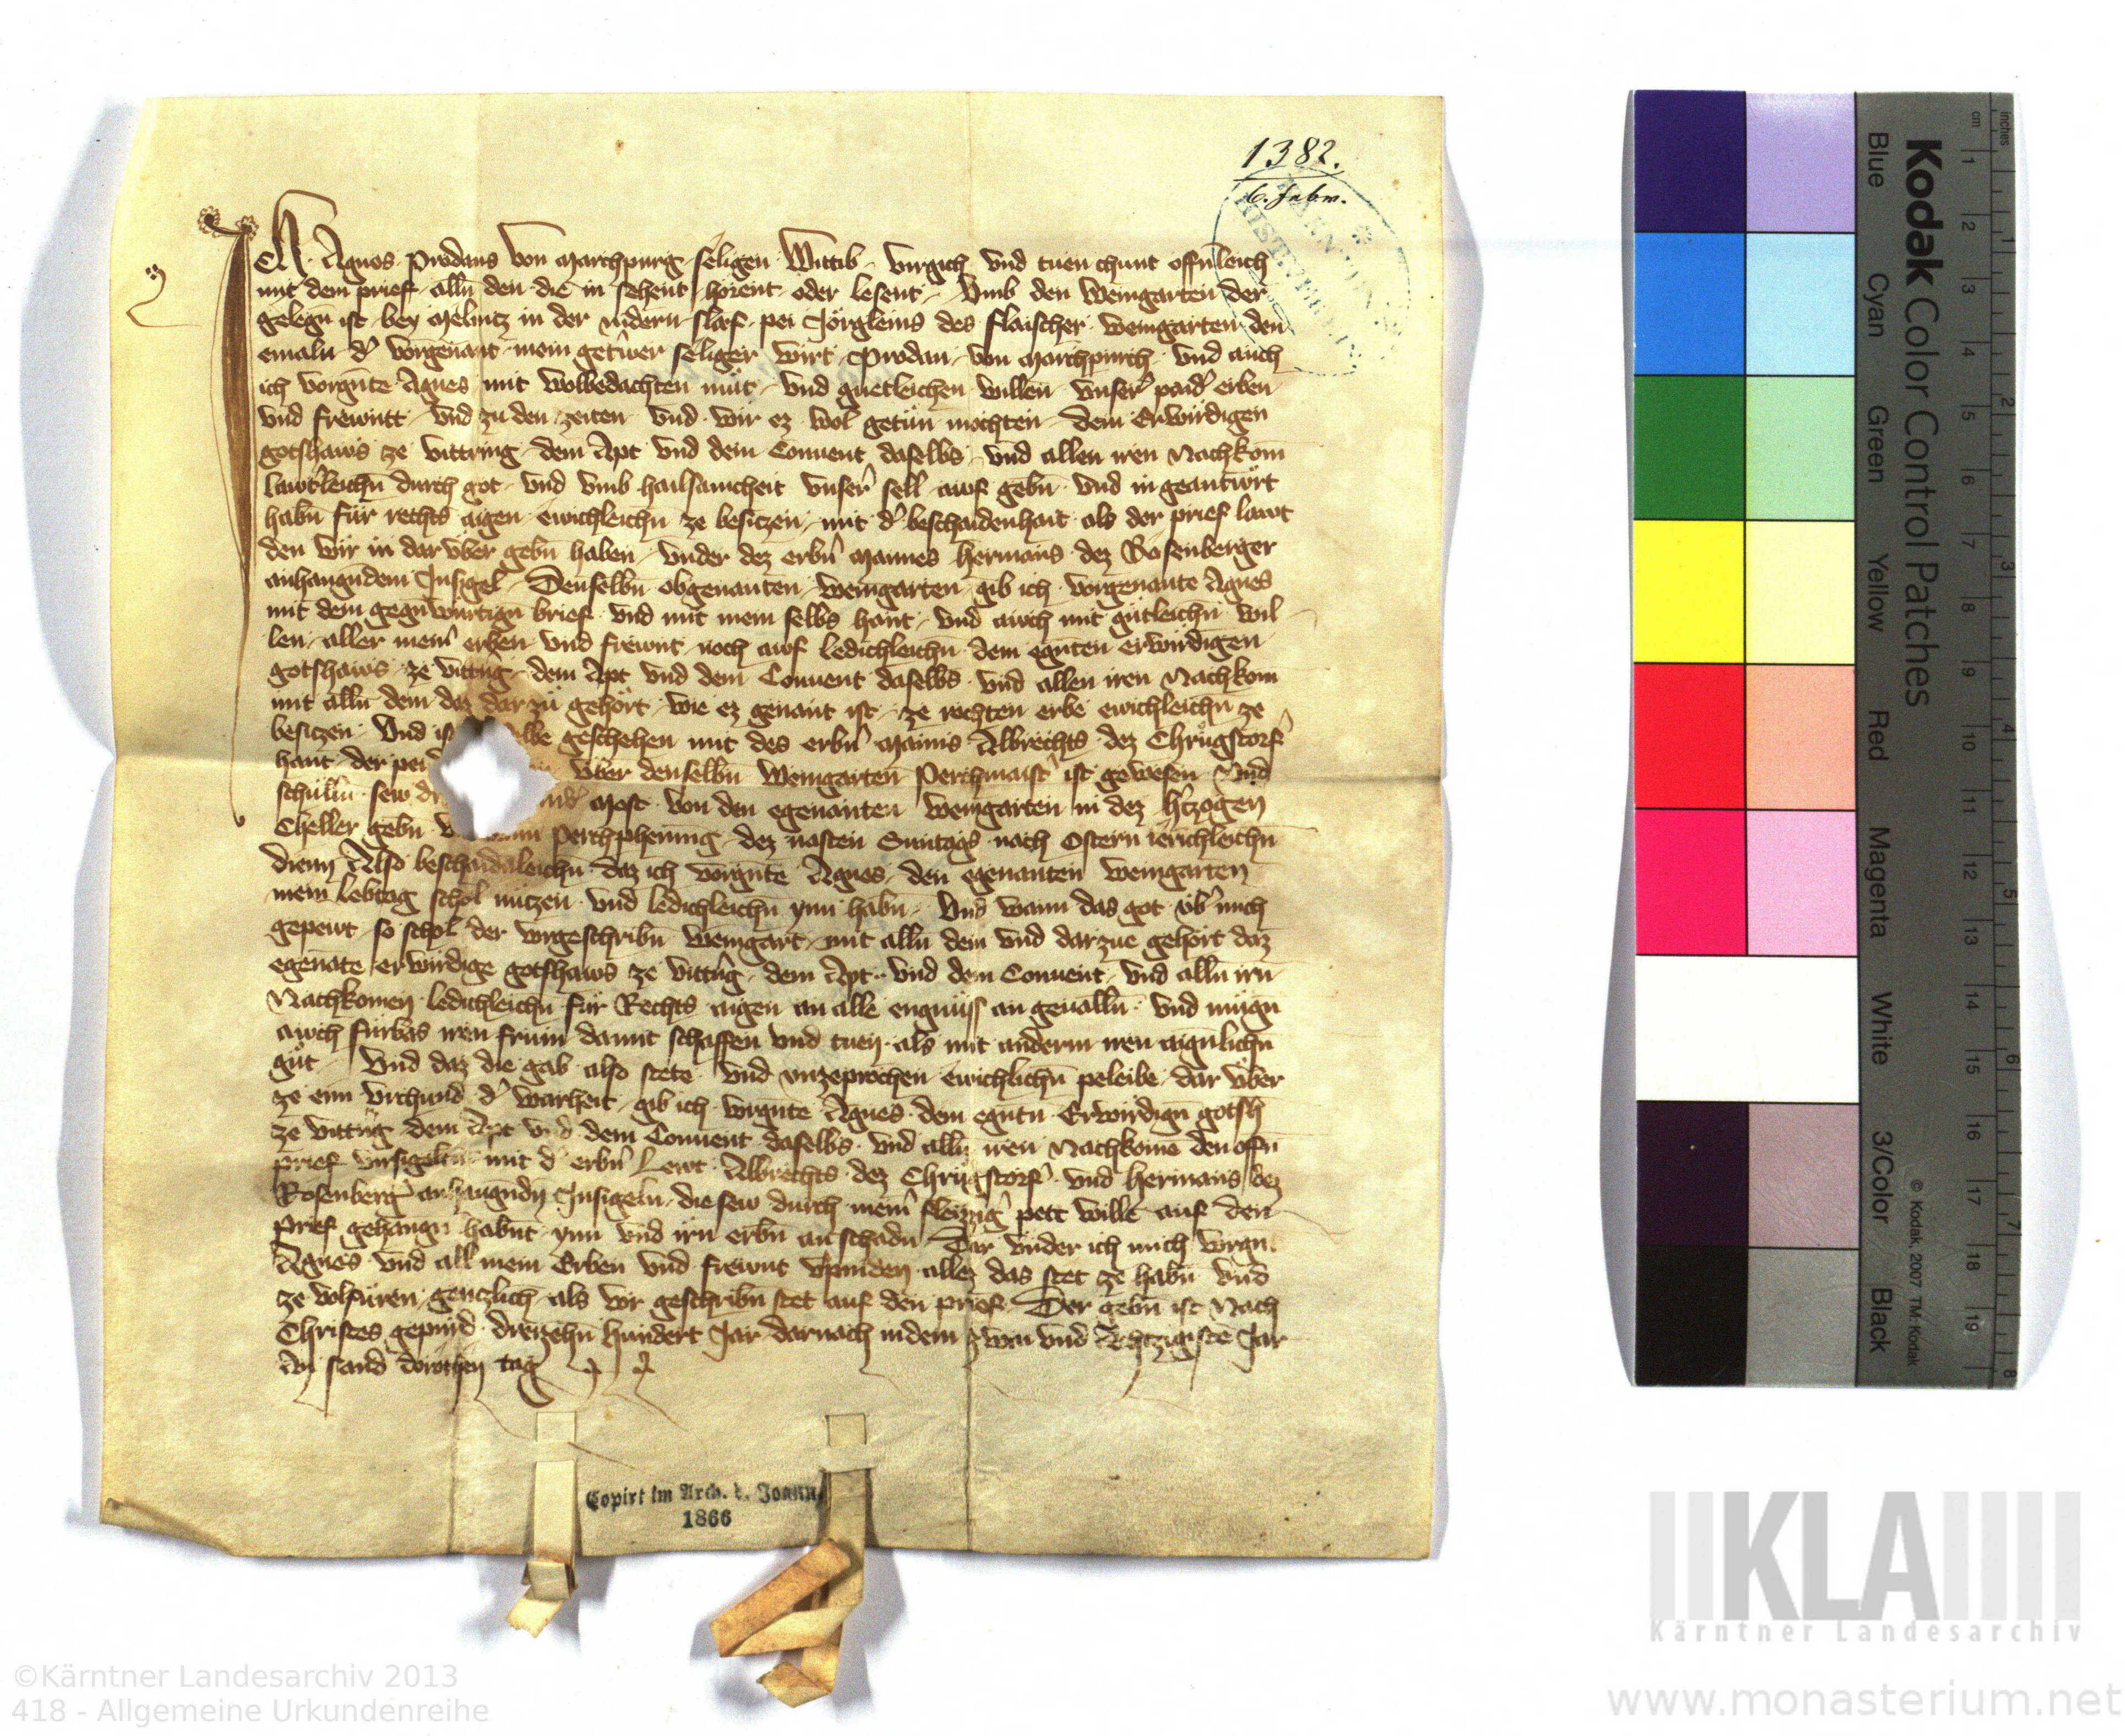 1382.
6. Febr.
Ich Agnes Prodans von Marchpurg seligen Wittib vergich vnd tuen chunt offnleich
mit dem prief alln den die in sehent horent oder lesent Vmb den Weingarten der
gelegn ist bey Melnitz in der nidern slaf pei Jörgleins des flaischer weingarten den
emaln d' vorgenant mein getrwer seliger wirt Prodan von Marchpurch vnd auch
ich vorgnte Agnes mit wolbedachten müt vnd guetleichen willen vnser paid' erben
vnd frewntt vnd zu den zeiten vnd wir ez wol getün mochten dem Erwirdigen
gotshaws ze Vittring dem Apt vnd dem Conuent daselbs vnd allen iren Nachkom
lawtterleichn durch got vnd vmb hailsamcheit vnser sell awf gebn vnd in geantwört
habn für rechts aigen ewichleichn ze besiczen mit d' beschaidenhait als der prief lawt
den wir in dar vber gebn haben vnder dez erbn Mannes Hermans dez Rosenberger
anhangundem Insigel Denselbn obgenanten weingarten gib ich vorgenante Agnes
mit dem gegnwurtign brief vnd mit mein selbs hant vnd awch mit gütleichn wil
len aller mein' erben vnd frewnt noch awf ledichleichn dem egnten erwirdigen
gotshaws ze vittrig dem Apt vnd dem Conuent daselbs vnd allen iren Nachkom
mit alln dem daz dar zü gehört wie ez genant ist ze rechten erbe ewichleichn ze
besiczen Vnd is elbe geschehen mit des erbn Manns Albrechts dez Chrügstorf'
hant der pei vber denselbn Weingarten Perchmaist' ist gewesen Vnd
schülln sew most von den egenanten weingarten in dez h'tzogen
Cheller gebn perchphenning dez nasten Suntags nach Ostern ierichleichn
dienn Also beschaidaleichn daz ich vorgnte Agnes den egenanten weingarten
mein lebtag schol nützen vnd ledichleichn ynn habn Vnd wann das got vb' mich
gepewt so schol der vorgeschribn weingart mit alln dem vnd darzue gehört daz
egenäte erwirdige gotshaws ze vittrig dem Apt vnd dem Conuent vnd alln irn
Nachkomen ledichleichn für Rechts aigen an alle engnüss an geualln vnd mügn
awch fürbas iren frum damit schaffen vnd tuen als mit anderm iren aignlichn
güt Vnd daz die gab also stete vnd vnzeprochen ewichlichn peleibe dar vber
ze eim vrchund d' warheit gib ich vorgnte Agnes dem egntn Erwirdign gotsh
ze vittrig dem Apt vnd dem Conuent daselbs vnd alln iren Nachkome den offn
prief versigeltn mit d' erbn Lewt Albrechts dez Chrügstorf' vnd Hermans dez
Rosenberg' anhangndn Insigeln die sew durch mein' fleizzig' pett wille auf den
Prief gehangn habnt ynn vnd irn erbn an schadn Dar vnder ich mich vorgn
Agnes vnd all mein Erben vnd frewnt verpinden allez das stet ze habn vnd
ze volfüren genczlich als vor geschribn stet auf den prief Der gebn ist Nach
Christes gepurd drewzehn hundert Jar darnach in dem zwai vnd Achtzigiste Jar
An sand dorothen tag
Copirt im Arch. d. Joann.
1866
Kodak Color Control Patches
Blue Cyan Green Yellow Red Magenta White 3/Color Black
© Kodak, 2007 TM: Kodak
cm 1 2 3 4 5 6 7 8 9 10 11 12 13 14 15 16 17 18 19
inches 1 2 3 4 5 6 7 8
KLA
Kärntner Landesarchiv
©Kärntner Landesarchiv 2013
418 - Allgemeine Urkundenreihe
www.monasterium.net